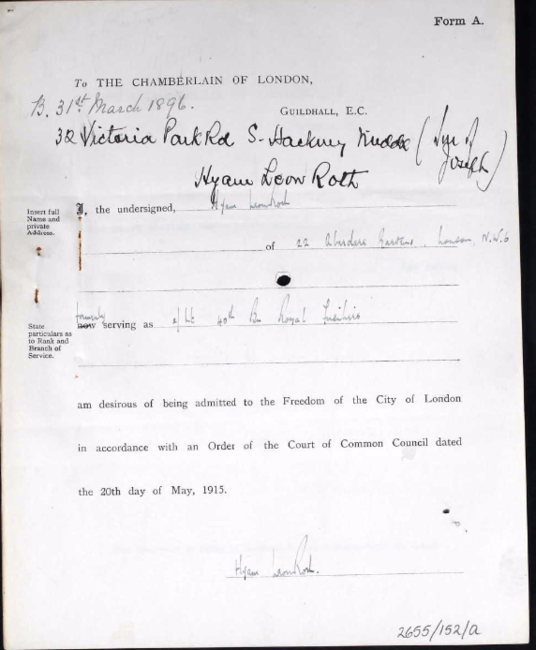 Form A.
To THE CHAMBERLAIN OF LONDON,
B. 31st March 1896.
GUILDHALL, E.C.
32 Victoria Park Rd S-Hackney Middx (Son of
Joseph)
Hyam Leon Roth
Insert full
Name and
private
Address.
I, the undersigned, Hyam Leon Roth
of 22 Aberdare Gardens, London, N.W.6
formerly
State
particulars as
to Rank and
Branch of
Service.
now serving as 2/Lt 40th Bn Royal Fusiliers
am desirous of being admitted to the Freedom of the City of London
in accordance with an Order of the Court of Common Council dated
the 20th day of May, 1915.
Hyam Leon Roth.
2655/152/a